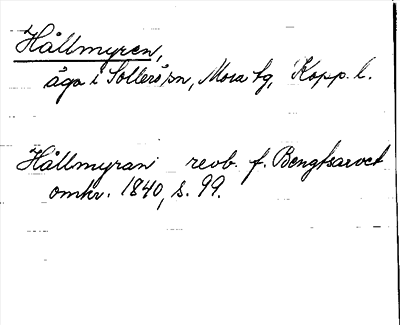 Hållmyren,
äga i Sollerö sn, Mora tg, Kopp. l.
Hållmyran revb. f. Bengtsarvet
omkr. 1840, s. 99.